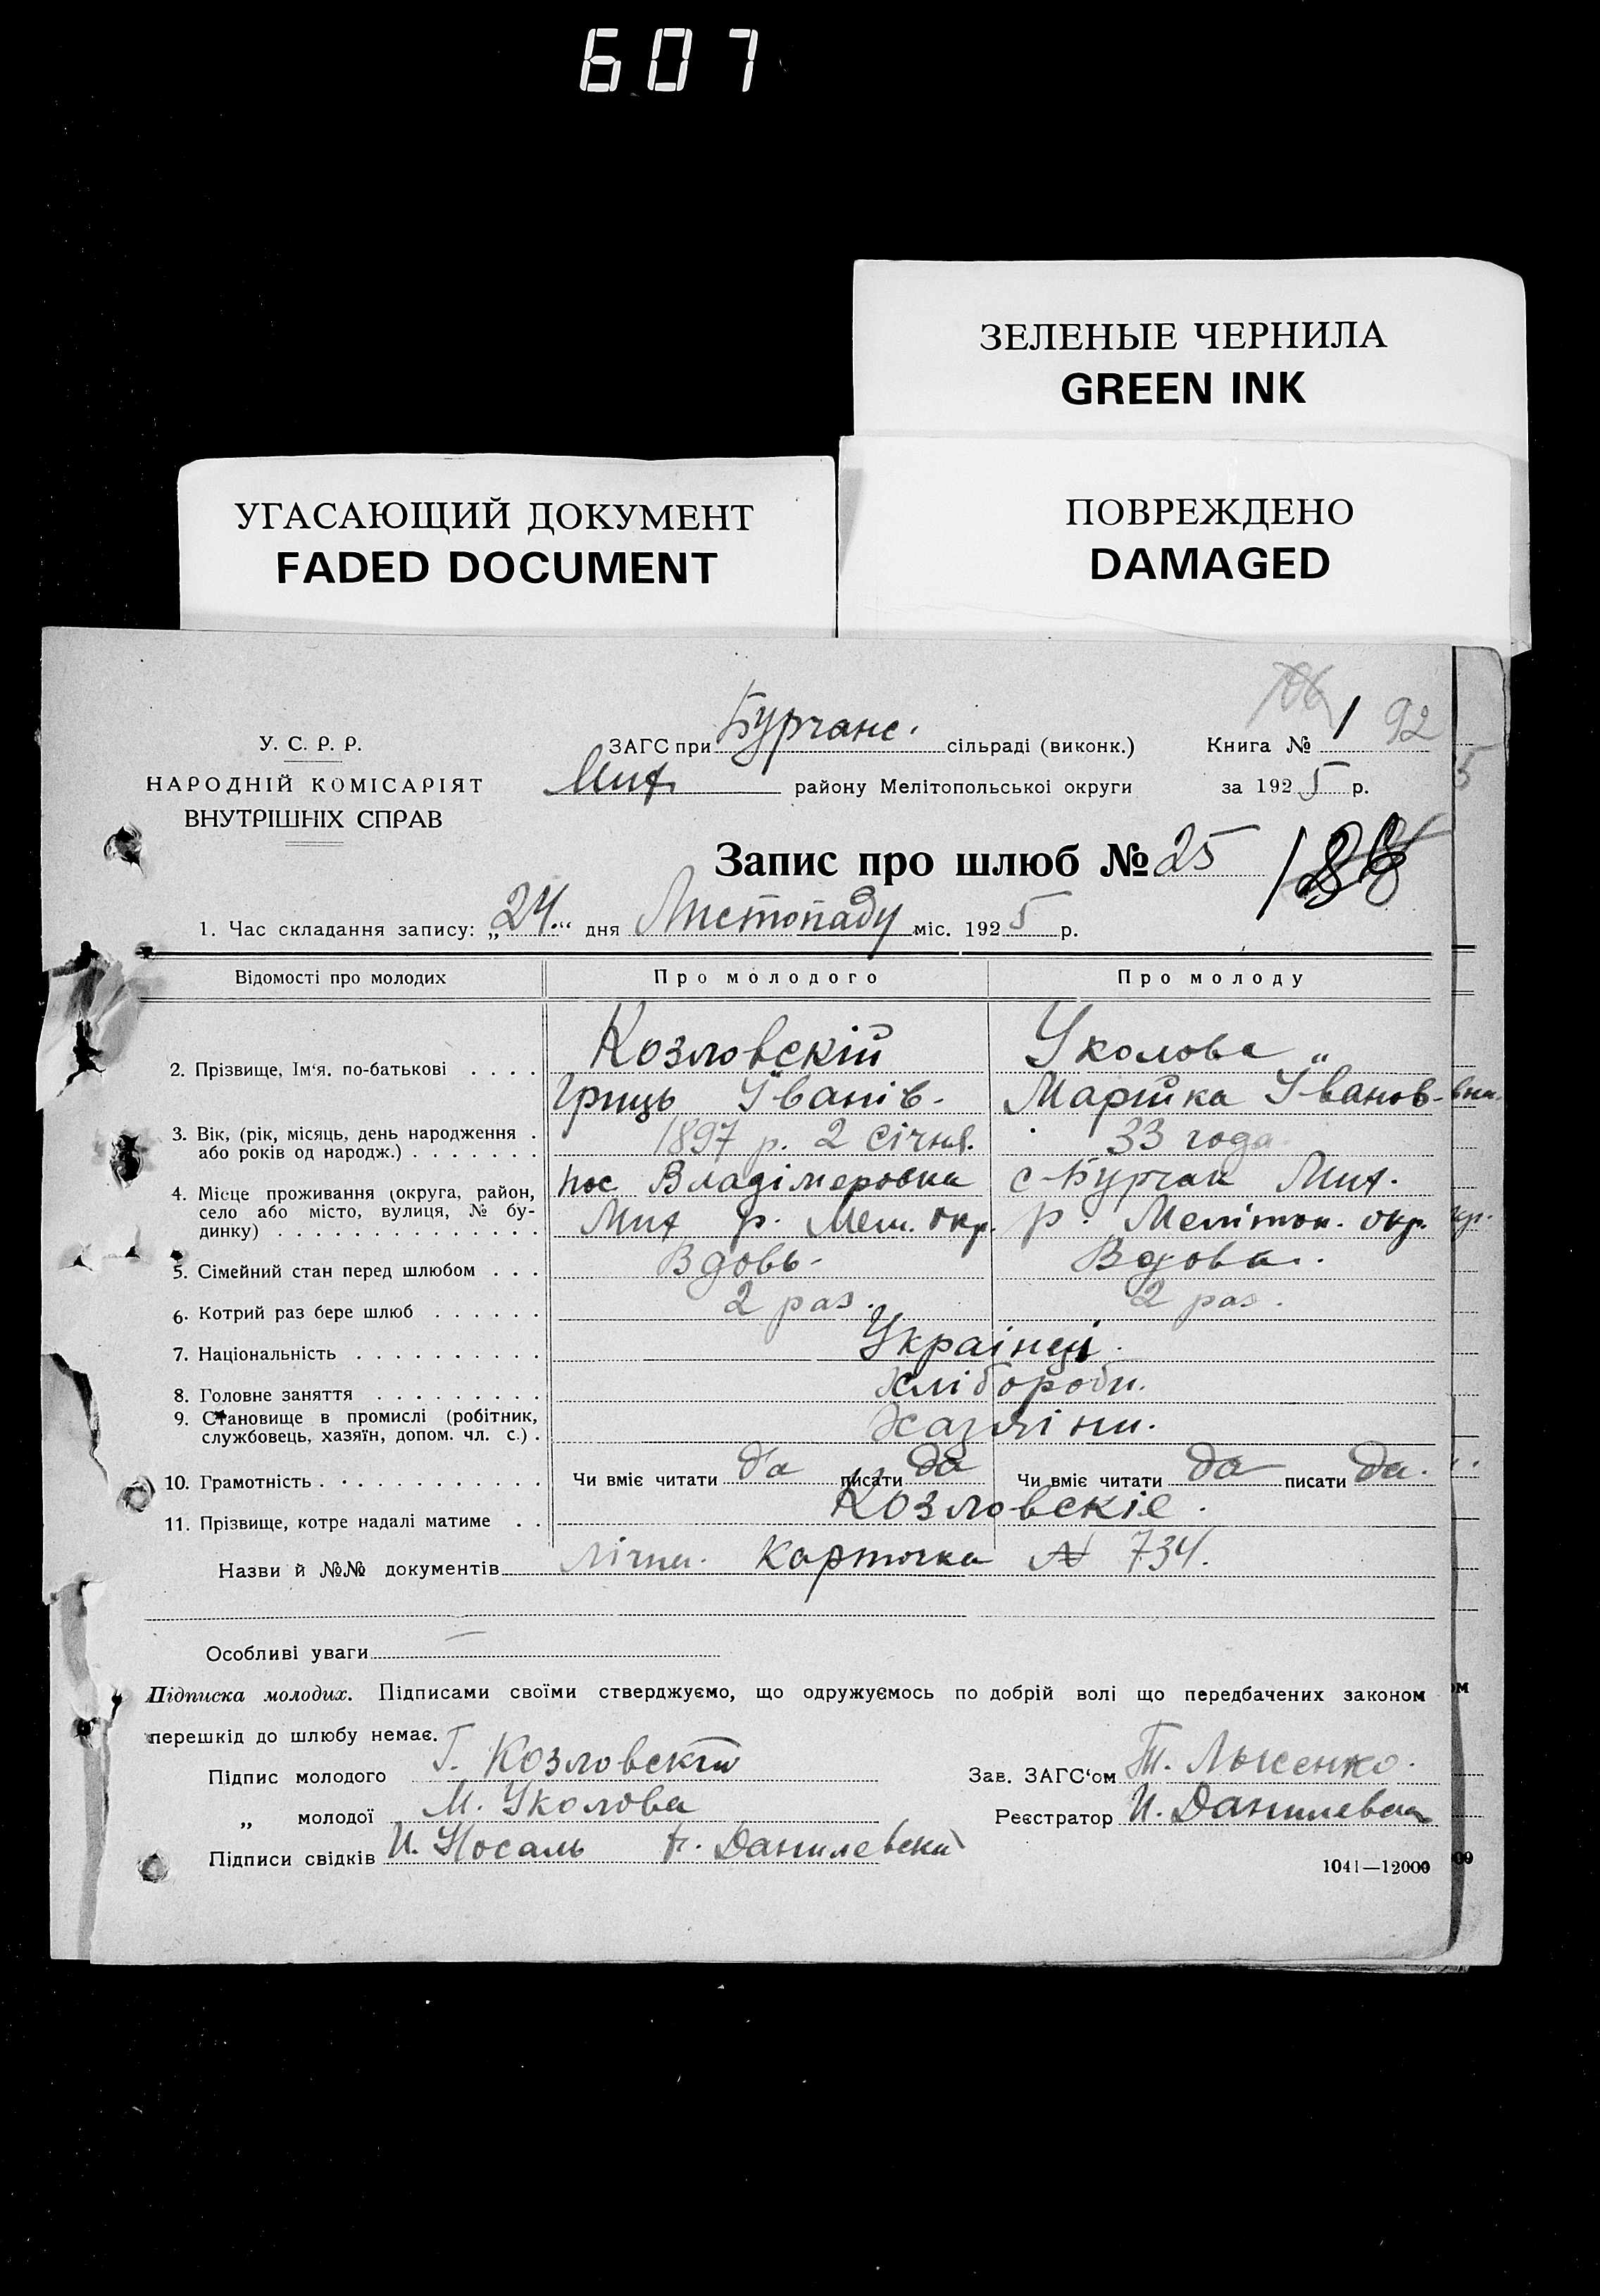 607
ЗЕЛЕНЫЕ ЧЕРНИЛА
GREEN INK
УГАСАЮЩИЙ ДОКУМЕНТ
FADED DOCUMENT
ПОВРЕЖДЕНО
DAMAGED
У. С. Р. Р.
НАРОДНІЙ КОМІСАРІЯТ
ВНУТРІШНІХ СПРАВ
ЗАГС при Бурчанс. сільраді (виконк.) Книга № 1 92
Мих. району Мелітопольскої округи за 1925 р.
Запис про шлюб № 25
1. Час складання запису: „24.“ дня Листопаду міс. 1925 р.
Відомості про молодих Про молодого Про молоду
2. Прізвище, Ім‘я, по-батькові . . . . Козловскій Уколова
Гриць Іванів. Марійка Іванов-
3. Вік, (рік, місяць, день народження . 1897 р. 2 січня. 33 года
або років од народж.) . . . . . . .
4. Місце проживання (округа, район, пос Владімеровка с-Бурчак Мих.
село або місто, вулиця, № бу- Мих р. Мел. окр. р. Мелітоп. окр.
динку) . . . . . . . . . . . . . .
5. Сімейний стан перед шлюбом . . . Вдовь- Вдова.
6. Котрий раз бере шлюб . . . . . . 2 раз. 2 раз.
7. Національність . . . . . . . . . . Українці.
8. Головне заняття . . . . . . . . . Хлібороби.
9. Становище в промислі (робітник,
службовець, хазяїн, допом. чл. с.) . Хазяіни.
10. Грамотність . . . . . . . . . . . Чи вміє читати да писати да Чи вміє читати да писати да.
11. Прізвище, котре надалі матиме . . Козловскіе.
Назви й №№ документів Лічна. Карточка N 734.
Особливі уваги
Підписка молодих. Підписами своїми стверджуємо, що одружуємось по добрій волі що передбачених законом
перешкід до шлюбу немає.
Підпис молодого Г. Козловскій Зав. ЗАГС‘ом Т. Лысенко.
„ молодої М. Уколова Реєстратор И. Данилевск
Підписи свідків И. Носаль Данилевский
1041—12000